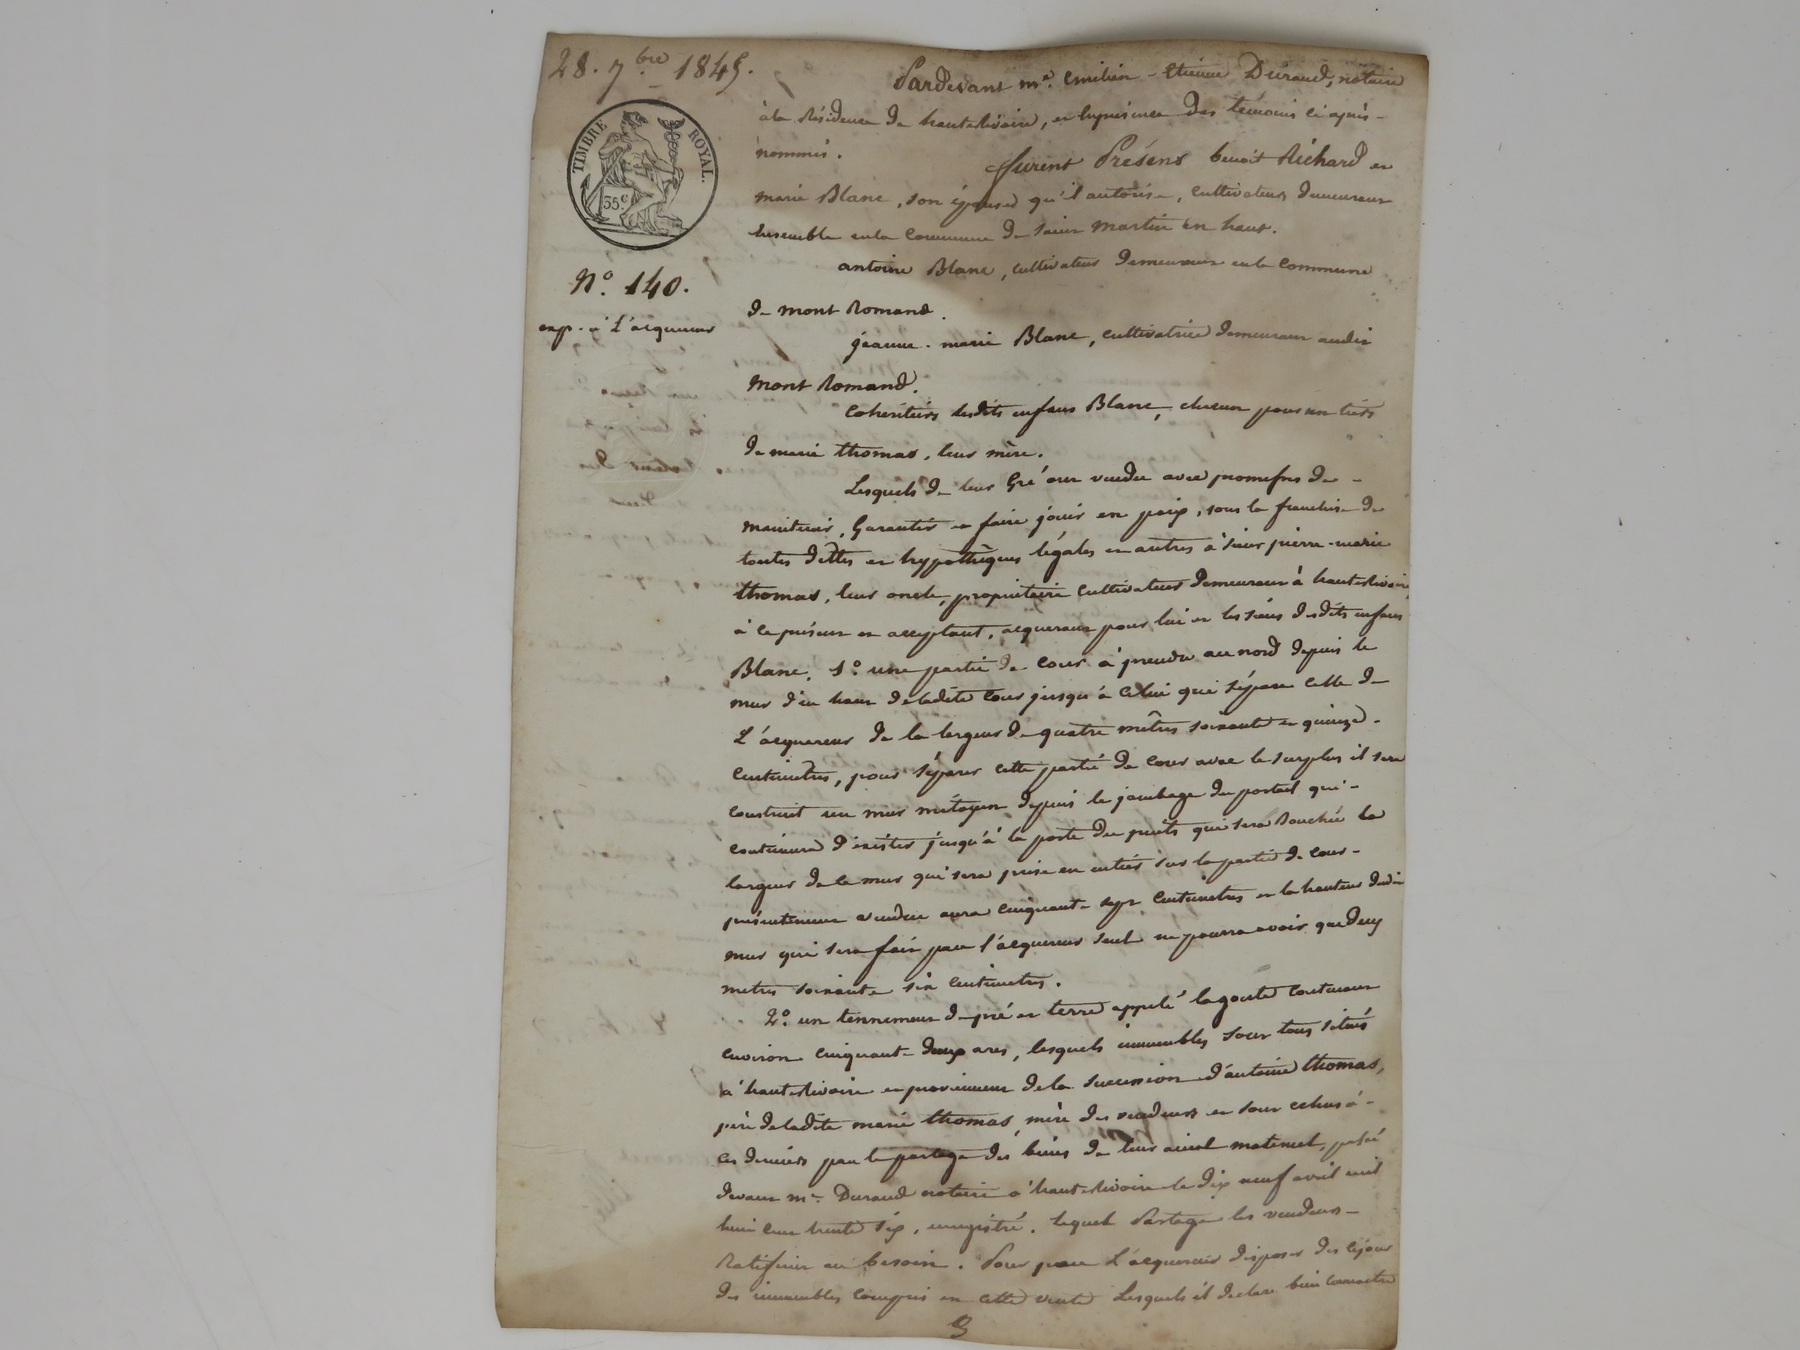 28. 7bre 1845.
TIMBRE ROYAL.
35c
N° 140.
exp. à l'acquereur
Pardevant me. Emilien-Etienne Durand, notaire
à la Résidence de hauterivoire, en la présence des témoins ci après-
nommés.
furent Présens benoit Richard et
marie Blanc, son épouse qu'il autorise, cultivateurs demeurant
Ensemble en la Commune de saint Martin en haut.
antoine Blanc, cultivateur demeurant en la Commune
de mont Romand.
jeanne-marie Blanc, cultivatrice demeurant audit
mont Romand.
Cohéritiers lesdits enfans Blanc, chacun pour un tiers
de marie thomas, leur mère.
Lesquels de leur Gré ont vendu avec promesses de-
maintenir, Garantir et faire jouir en paix, sous la franchise de
toutes dettes et hypothèques légales et autres à sieur pierre-marie
thomas, leur oncle, propriétaire cultivateur demeurant à hauterivoire,
à ce présent et acceptant, acquereur pour lui et les siens desdits enfans
Blanc. 1° une partie de cour à prendre au nord depuis le
mur d'en haut de ladite cour jusqu'à celui qui sépare celle de
L'acquereur de la largeur de quatre mètres soixante et quinze-
centimètres, pour séparer cette partie de cour avec le surplus il sera
construit un mur mitoyen depuis le jambage du portail qui-
continuera d'exister jusqu'à la porte du puits qui sera Bouchée la
largeur de ce mur qui sera prise en entier sur la partie de cour-
présentement vendue aura cinquante sept centimetres et la hauteur dudit
mur qui sera fait par l'acquereur seul ne pourra avoir que deux
metres soixante six centimetres.
2° un tennement de pré et terre appelé lagoutte contenant
environ cinquante deux ares, lesquels immeubles sont tous situés
à hauterivoire et proviennent de la succession d'antoine thomas,
père de ladite marie thomas, mère des vendeurs et sont echus à-
ces derniers par le partage des biens de leur aieul maternel, passé
devant me. Durand notaire à hauterivoire le dix neuf avril mil
huit cent trente six, enregistré. lequel Partage les vendeurs-
Ratifient au besoin. Pour par L'acquereur disposer dès ce jour
des immeubles compris en cette vente Lesquels il declare bien connaitre